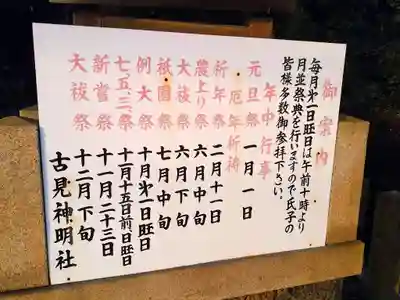 御案内
毎月才一日旺日は午前十時より
月並祭典を行いますので氏子の
皆様多数御参拝下さい。
年中行事
厄年祈祷
元旦祭 一月一日
祈年祭 二月十一日
農上り祭 六月中旬
大祓祭 六月下旬
祇園祭 七月中旬
例大祭 十月才一日旺日
七、五、三祭 十一月十五日前日旺日
新嘗祭 十一月二十三日
大祓祭 十二月下旬
古見神明社